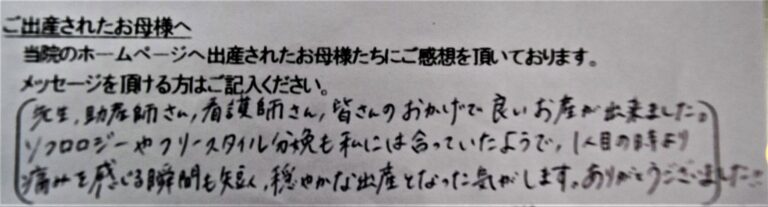 ご出産されたお母様へ
当院のホームページへ出産されたお母様たちにご感想を頂いております。
メッセージを頂ける方はご記入ください。
先生,助産師さん,看護師さん,皆さんのおかげで良いお産が出来ました。
ソフロロジーやフリースタイル分娩も私には合っていたようで,1人目の時より
痛みを感じる瞬間も短く,穏やかな出産となった気がします。ありがとうございました!!